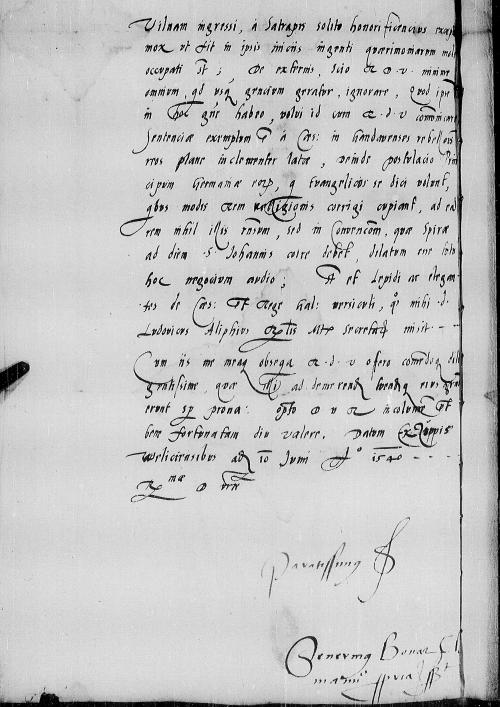 Vilnam ingressi, à Satrapis solito honorificencius
mox ut fit in ipsis iniciis ingenti querimoniarum
occupati st; De extremis, scio R D V minime
omnium, qd usq gencium geratur, ignorare, Quod
in hoc gne habeo, volui id cum R. D. V
Sentenciæ exemplum è à Cæs: in Gandavenses
plane inclementer latæ, deinde postulacio
cipum Germaniæ eorp, q Evangelicos se dici volunt,
qbus modis Rem religionis corrigi cupiant, ad
rem nihil illos ensum, sed in Convencem, quæ Spiræ
ad diem S Johannis coire debet, dilatum ene
hoc negocium audio; st et Lepidi ac elegan
tes de Cæs: et Rege Gal: versiculi, qs mihi d.
Ludovicus Aliphius Rtis secretarius misit
Cum iis me meaq obseqa R. D. V offero comedoq dili
gentissime, quæ ad demerendu
erunt sp prona. opto D V R incolume et
bene fortunatam diu valere. Datum Ex
Weliciensibus adi 10 Junii A° 1540
R mæ D Vræ
Paratissimus
Severinus Bonar